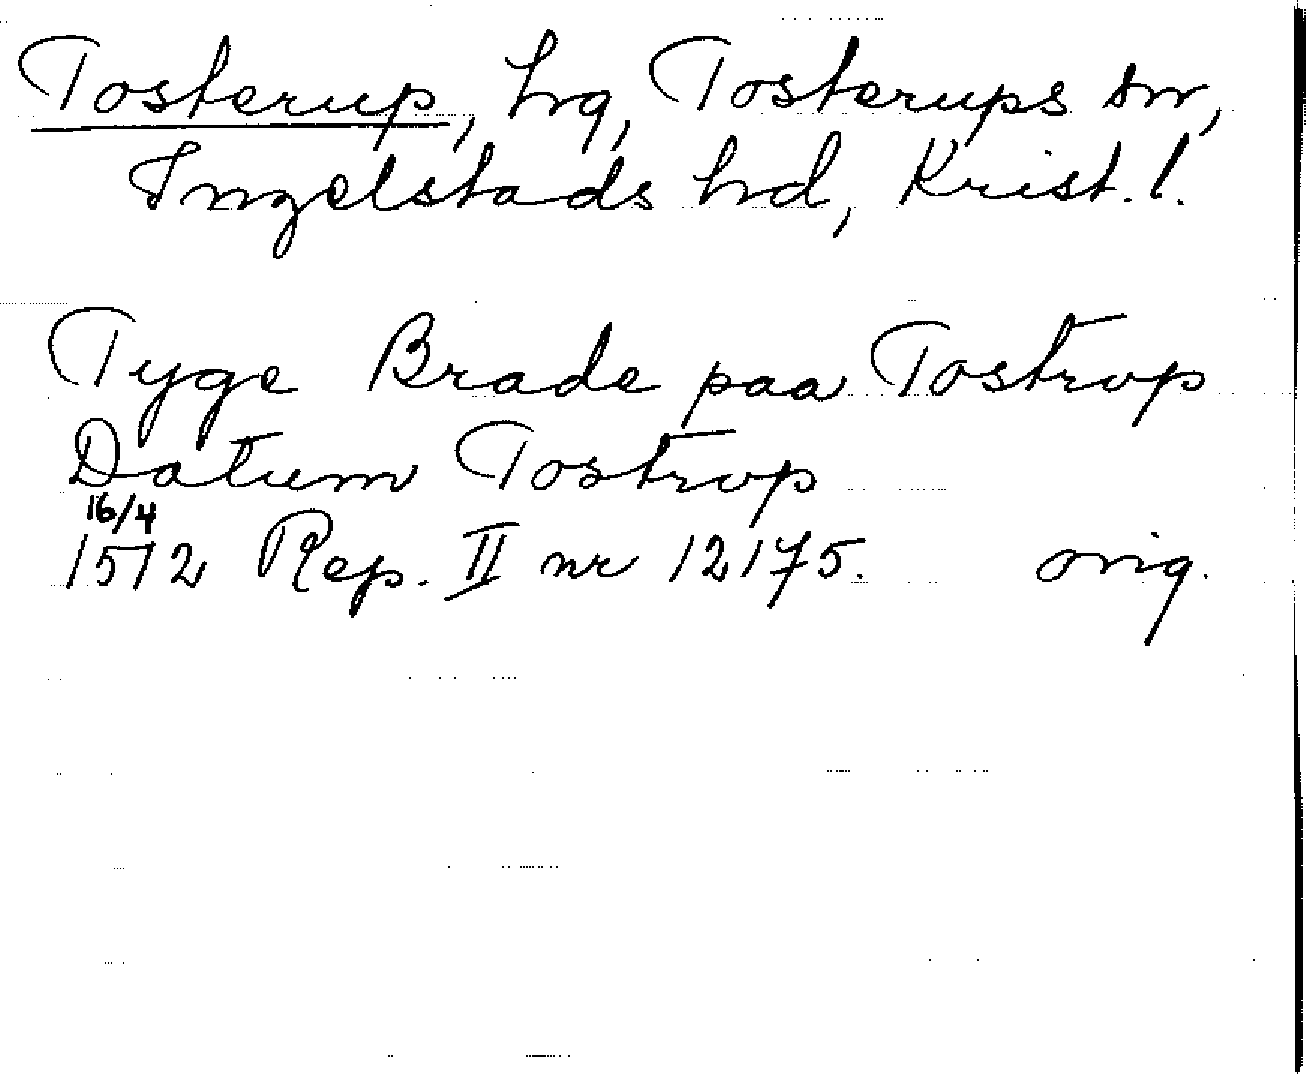 Tosterup, hrg, Tosterups sn,
Ingelstads hrd, Krist. l.
Tyge Brade paa Tostrop
Datum Tostrop
16/4
1512 Rep. II nr 12175. orig.